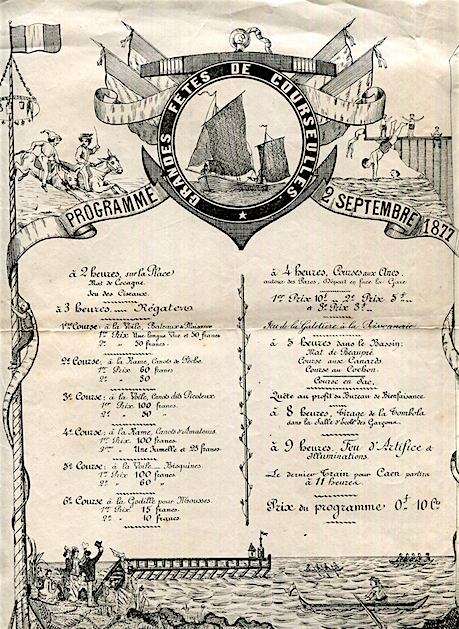 GRANDES FÊTES DE COURSEULLES
PROGRAMME
2 SEPTEMBRE 1877
à 2 heures, sur la Place
Mat de Cocagne.
Jeu des Ciseaux.
à 3 heures Régates
1re Course: à la Voile, Bateaux de Plaisance
1er Prix Une longue Vue et 50 francs
2e " 50 francs.
2e Course: à la Rame, Canots de Pêche.
1er Prix 60 francs
2e " 30
3e Course: à la Voile, Canots dits Picoteux
1er Prix 100 francs.
2e " 50 "
4e Course: à la Rame, Canots d'Amateurs.
1er Prix 100 francs
2e " Une Jumelle et 25 francs
5e Course: à la Voile Bisquines.
1er Prix 100 francs
2e " 60 "
6e Course à la Godille pour Mousses.
1er Prix 15 francs
2e " 10 francs
à 4 heures, Courses aux Anes,
autour des Parcs, Départ en face la Gare
1er Prix 10f 2e Prix 5f
3e Prix 3f
Jeu de la à la
à 5 heures dans le Bassin:
Mat de Beaupré
Course aux Canards
Course au Cochon
Course en Sac.
Quête au profit du Bureau de Bienfaisance
à 8 heures, Tirage de la Tombola
dans la Salle d'école des Garçons.
à 9 heures, Feu d'Artifice et
Illuminations.
Le dernier Train pour Caen partira
à 11 heures
Prix du programme 0f 10c